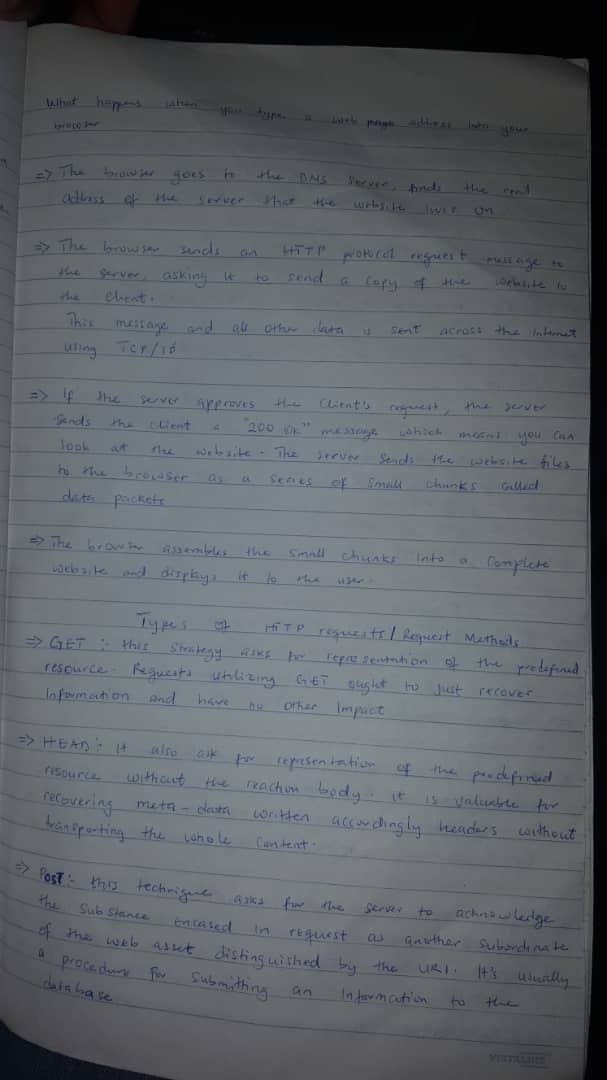 What happens when you type a web page address into your
browser
=> The browser goes to the DNS server, finds the real
address of the server that the website lives on
=> The browser sends an HTTP protocol request message to
the server, asking it to send a copy of the website to
the client.
This message and all other data is sent across the internet
using TCP/IP
=> If the server approves the client's request, the server
sends the client a "200 OK" message which means you can
look at the website. The server sends the website files
to the browser as a series of small chunks called
data packets
=> The browser assembles the small chunks into a complete
website and displays it to the user.
Types of HTTP requests / Request Methods
=> GET :- this strategy asks for representation of the predefined
resource. Requests utilizing GET ought to just recover
Information and have no other impact
=> HEAD :- It also ask for representation of the predefined
resource without the reaction body. it is valuable for
recovering meta-data written accordingly headers without
transporting the whole content.
=> POST :- this technique asks for the server to acknowledge
the substance encased in request as another subordinate
of the web asset distinguished by the URI. It's usually
a procedure for submitting an information to the
database